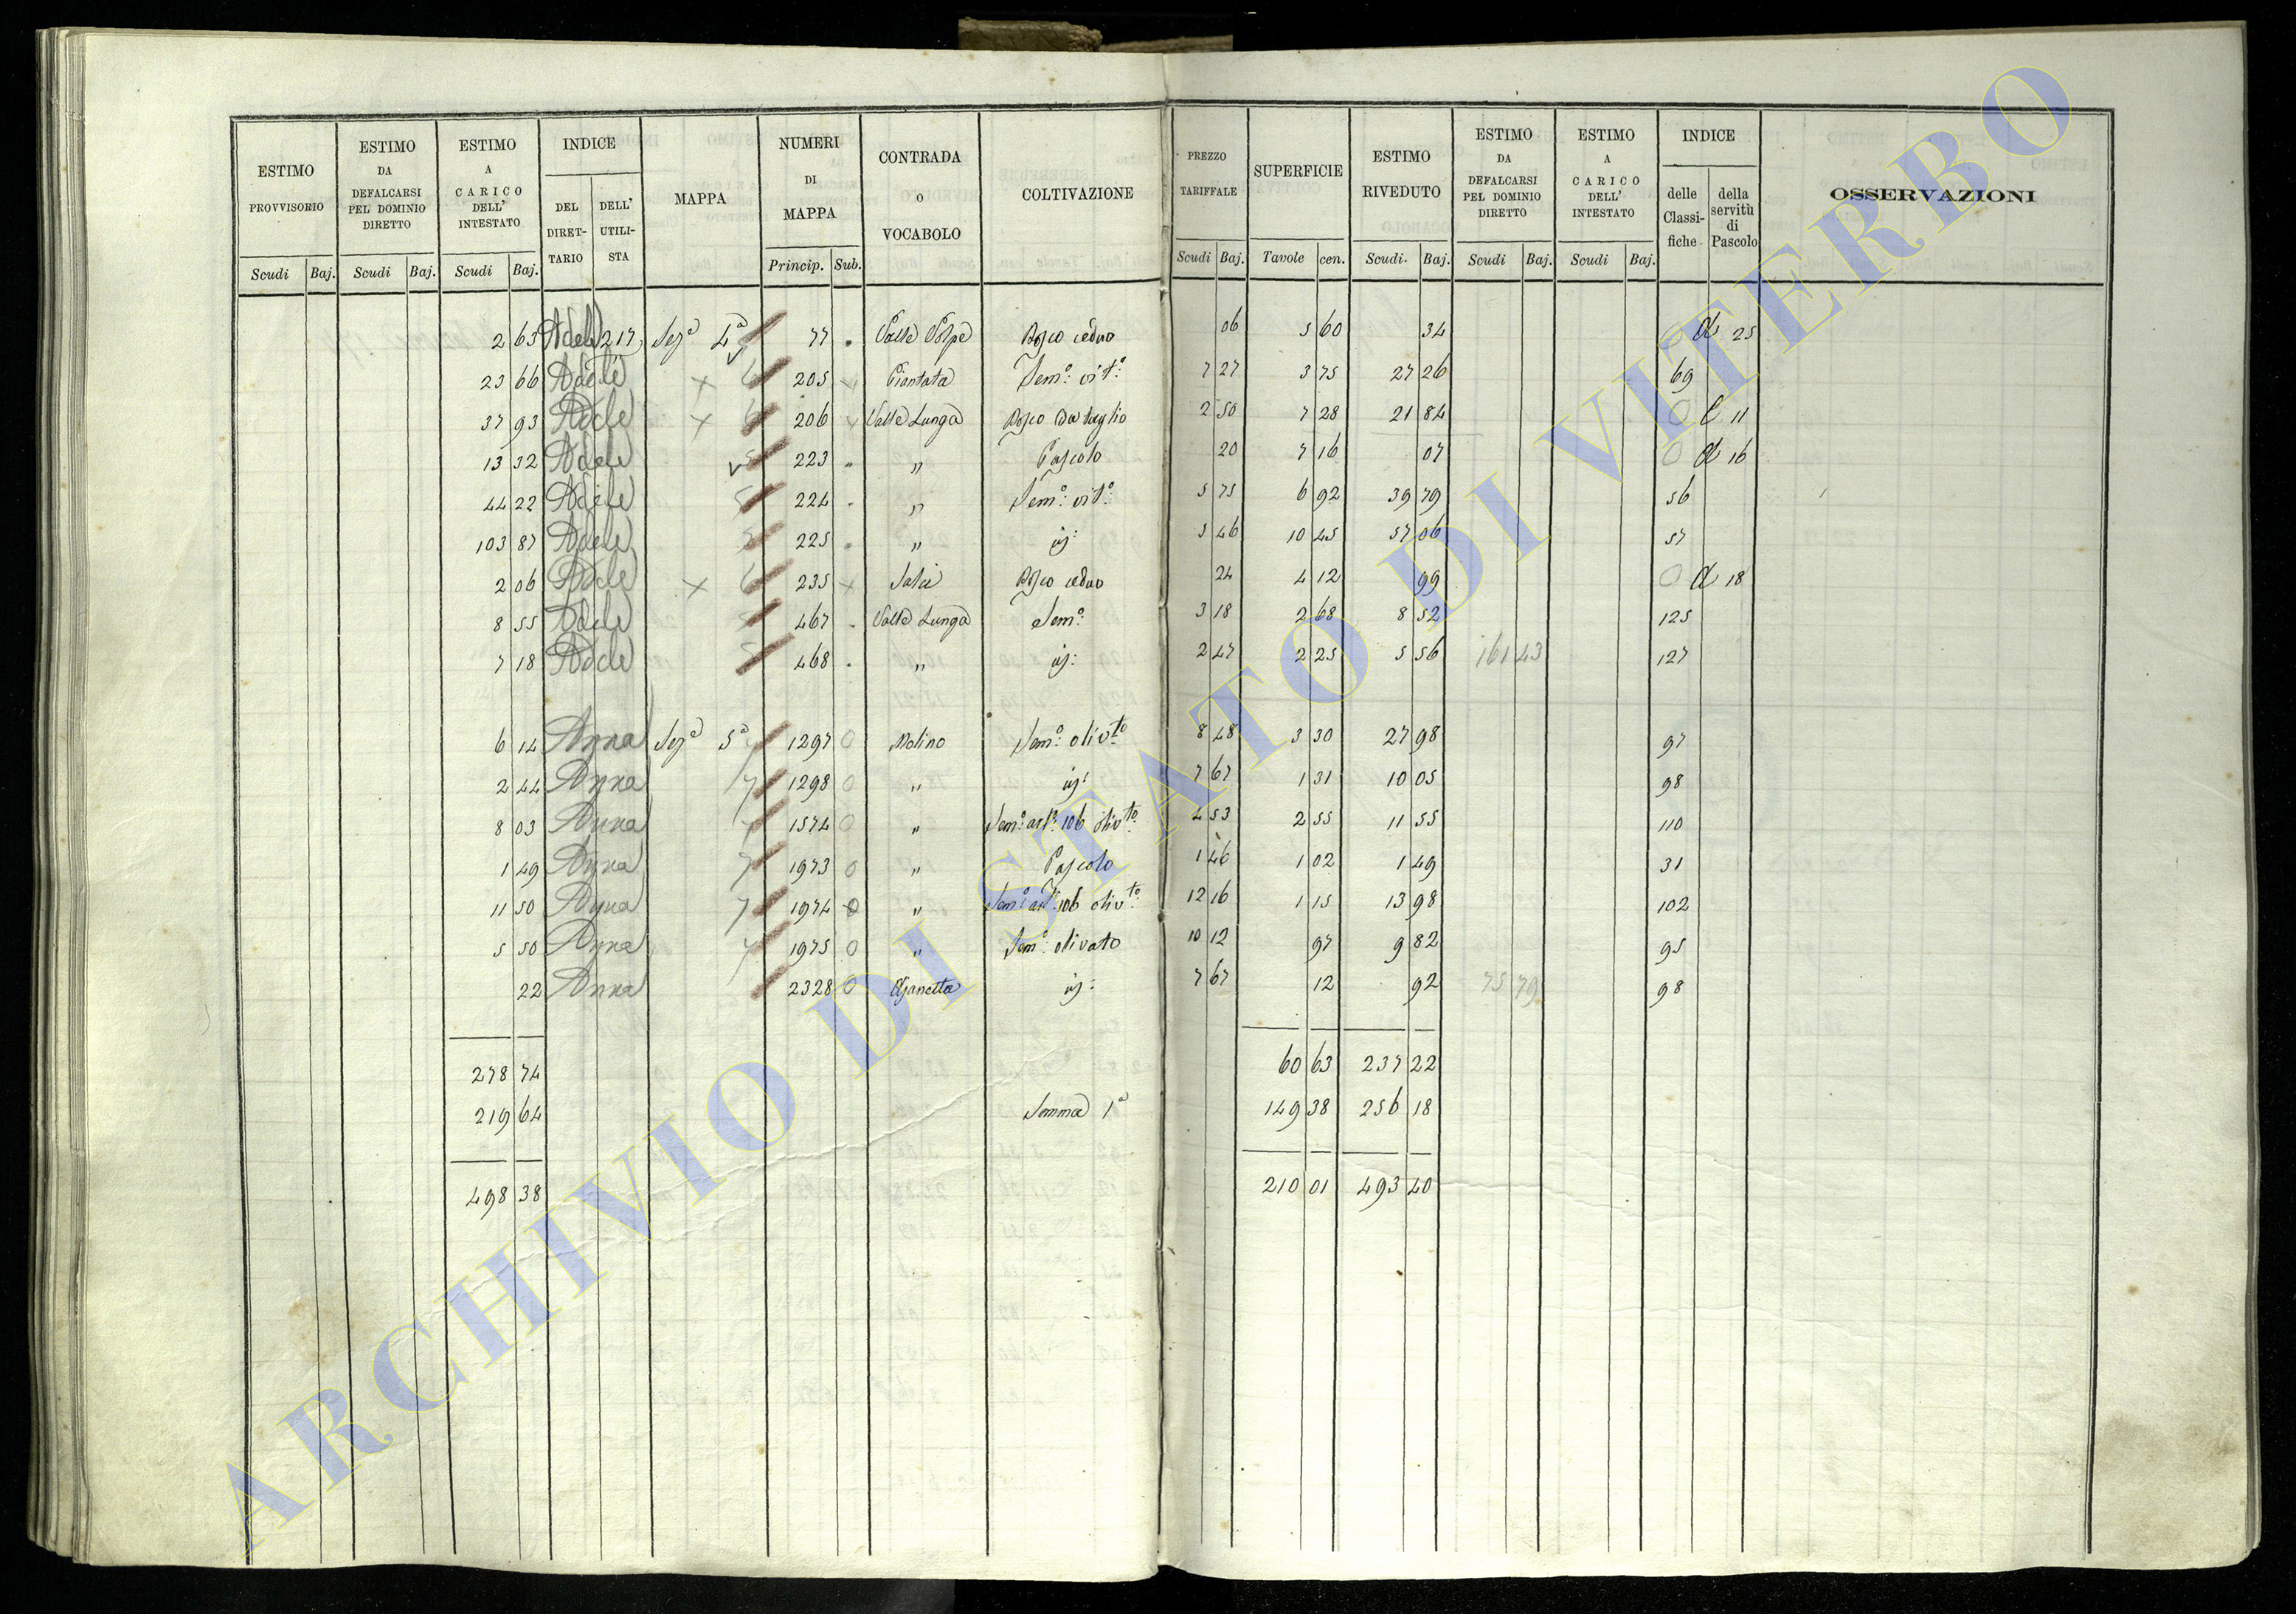 ESTIMO PROVVISORIO | ESTIMO DA DEFALCARSI PEL DOMINIO DIRETTO | ESTIMO A CARICO DELL' INTESTATO | INDICE DEL DIRET-TARIO | DELL' UTILI-STA | MAPPA | NUMERI DI MAPPA | CONTRADA O VOCABOLO | COLTIVAZIONE | PREZZO TARIFFALE | SUPERFICIE | ESTIMO RIVEDUTO | ESTIMO DA DEFALCARSI PEL DOMINIO DIRETTO | ESTIMO A CARICO DELL' INTESTATO | INDICE delle Classi-fiche | della servitù di Pascolo | OSSERVAZIONI
Scudi | Baj. | Scudi | Baj. | Scudi | Baj. | Princip. | Sub. | Scudi | Baj. | Tavole | cen. | Scudi. | Baj. | Scudi | Baj. | Scudi | Baj.
2 63 Adele 217 Sezª 4ª 77 Valle Volpe Bosco ceduo 06 5 60 34 25
23 66 Adele 205 Piantata Semº: vitº: 7 27 3 75 27 26 69
37 93 Adele 206 Valle Lunga Bosco da taglio 2 50 7 28 21 84 11
13 32 Adele 223 " Pascolo 20 7 16 07 16
44 22 Adele 224 " Semº: vitº: 5 75 6 92 39 79 56
103 87 Adele 225 " 5 46 10 45 57 06 57
2 06 Adele 235 Bosco ceduo 24 4 12 99 18
8 55 Adele 467 Valle Lunga Semº: 3 18 2 68 8 52 125
7 18 Adele 468 " 2 47 2 25 5 56 161 43 127
6 14 Anna Sezª 5ª 1297 0 Molino Semº: olivto 8 48 3 30 27 98 97
2 44 Anna 7 1298 0 " 7 67 1 31 10 05 98
8 03 Anna 7 1574 0 " Semº: artº: 106 olivto 4 53 2 55 11 55 110
1 49 Anna 7 1973 0 " Pascolo 1 46 1 02 1 49 31
11 50 Anna 7 1974 0 " Semº: artº: 106 olivto 12 16 1 15 13 98 102
5 50 Anna 7 1975 0 " Semº: olivato 10 12 97 9 82 95
22 Anna 2328 0 7 67 12 92 75 79 98
278 74 60 63 237 22
219 64 Somma 1ª 149 38 256 18
498 38 210 01 493 40
ARCHIVIO DI STATO DI VITERBO